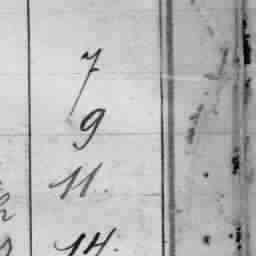 7
9
11.
14.